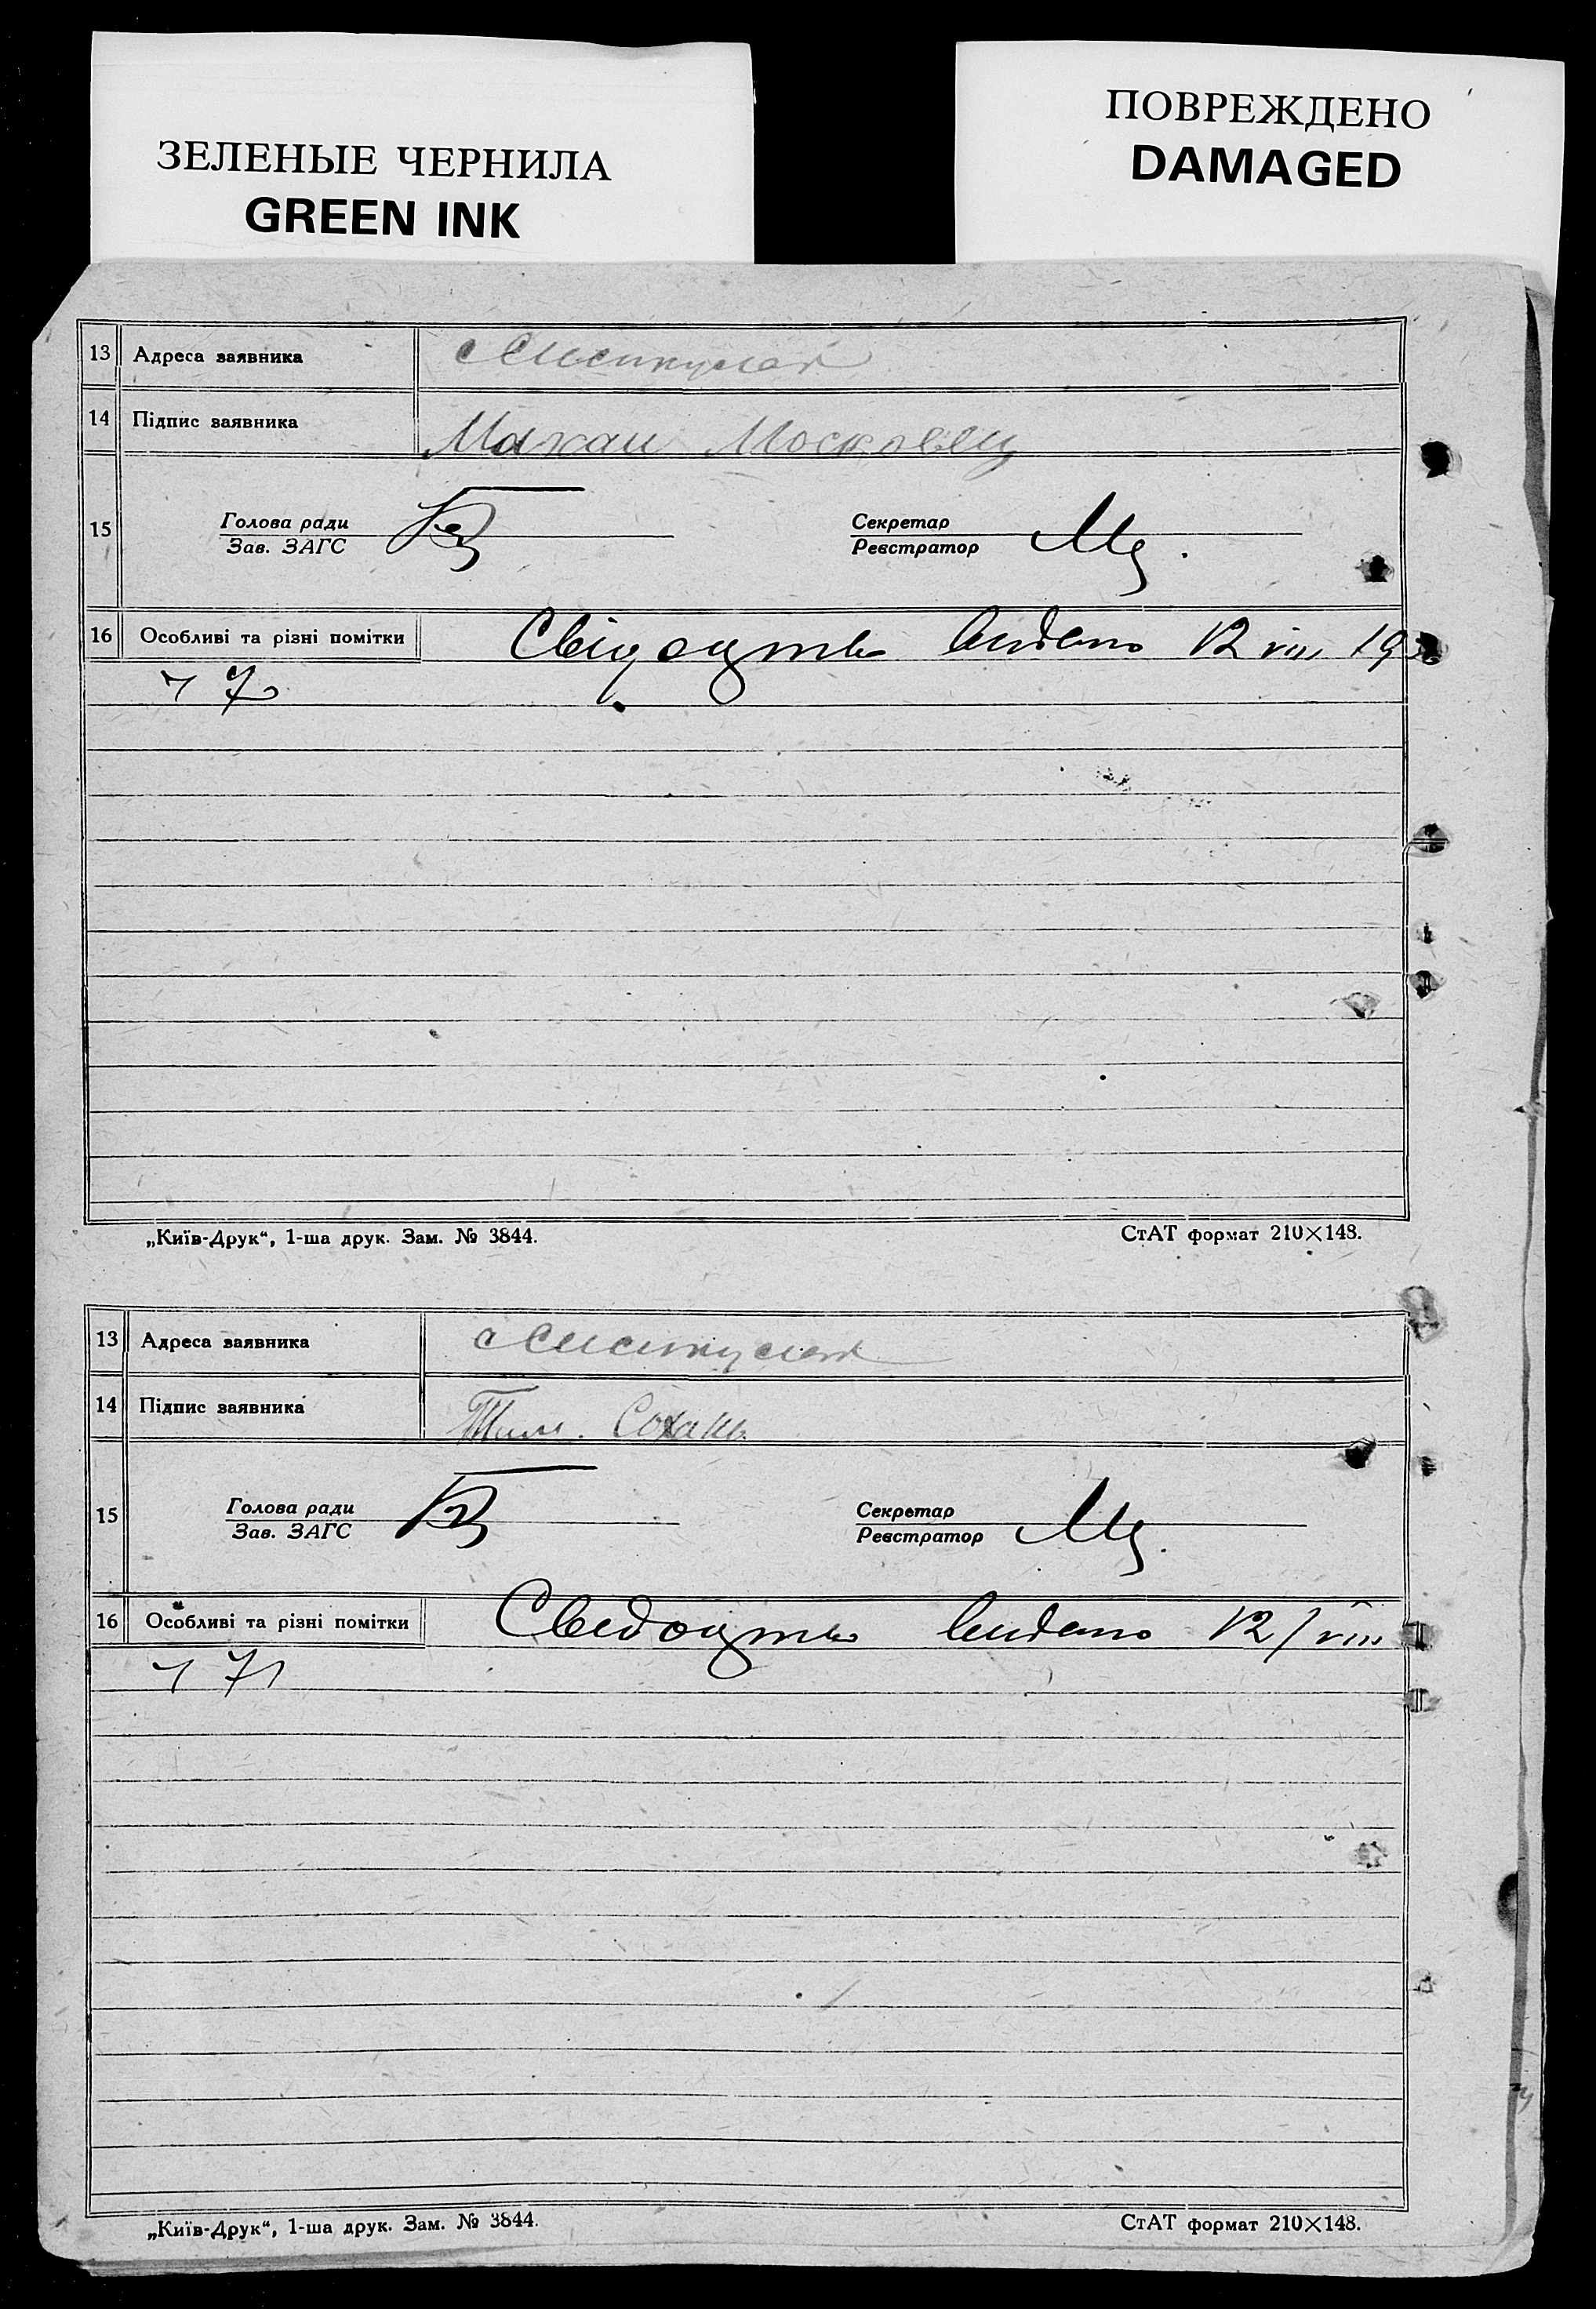 ЗЕЛЕНЫЕ ЧЕРНИЛА
GREEN INK
ПОВРЕЖДЕНО
DAMAGED
13 Адреса заявника
14 Підпис заявника Московец
15 Голова ради Секретар
Зав. ЗАГС Реєстратор
16 Особливі та різні помітки Свідоцтво видано 12 VIII 193
70
„Київ-Друк“, 1-ша друк. Зам. № 3844. СтАТ формат 210×148.
13 Адреса заявника
14 Підпис заявника Сохань
15 Голова ради Секретар
Зав. ЗАГС Реєстратор
16 Особливі та різні помітки Сведоцтво видано 12/VIII
71
„Київ-Друк“, 1-ша друк. Зам. № 3844. СтАТ формат 210×148.